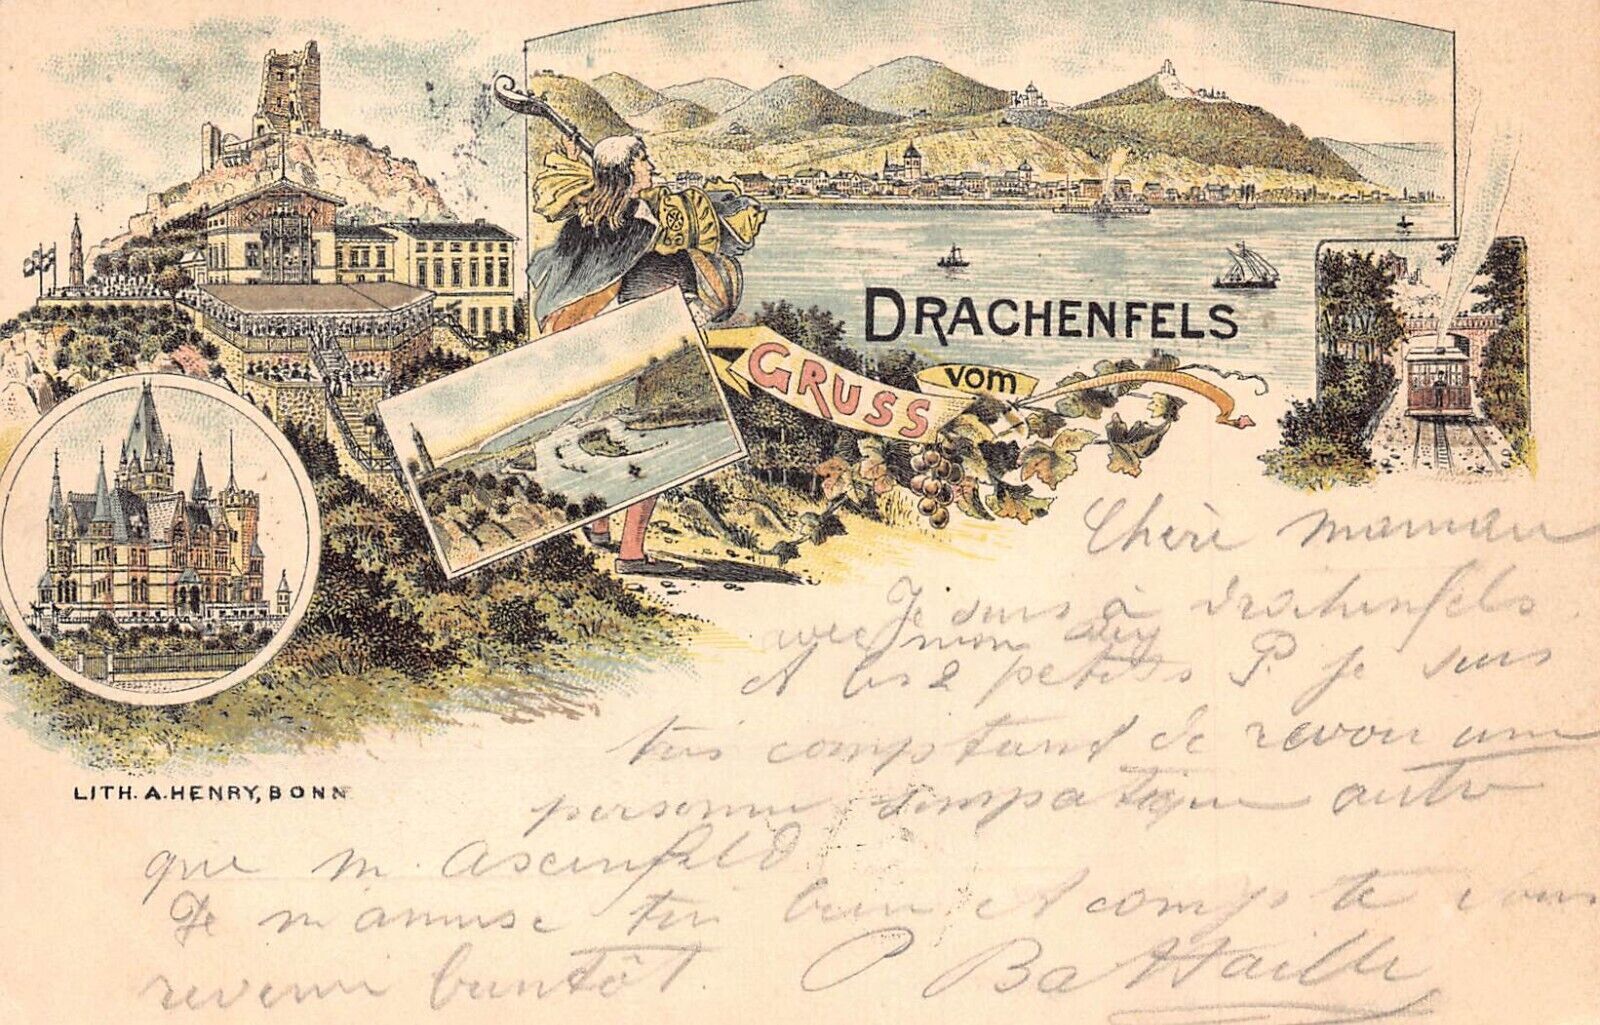 DRACHENFELS
GRUSS vom
LITH. A. HENRY, BONN
Chère maman
Je suis à Drachenfels
avec mon
et les 2 petits P. je suis
très de revoir une
personne simpatique autre
que m. Ascenfeld
Je m'amuse très bien et compte vous
revenir bientôt.
P Battaille